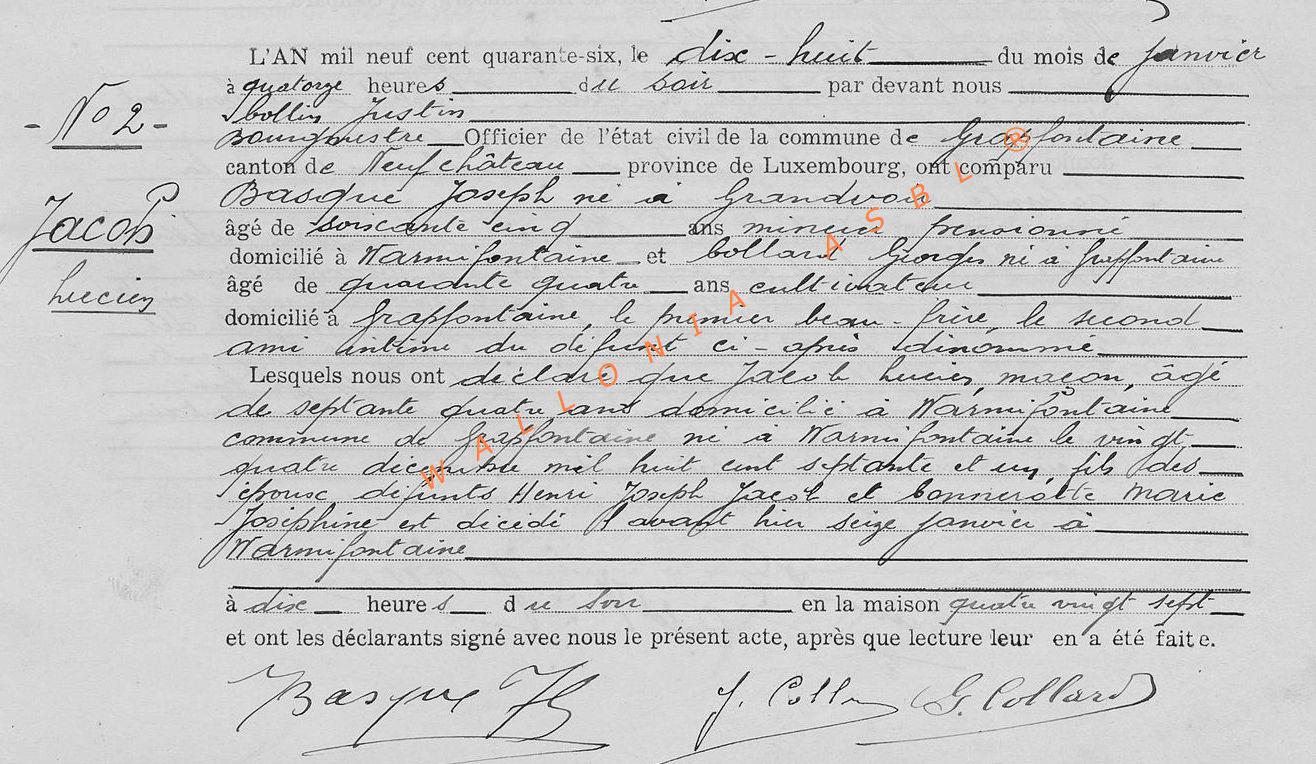 L'AN mil neuf cent quarante-six, le dix-huit du mois de janvier
à quatorze heures du soir par devant nous
Collin Justin
- No 2 -
Bourgmestre Officier de l'état civil de la commune de Grapfontaine
canton de Neufchâteau province de Luxembourg, ont comparu
Basque Joseph né à Grandvoir
Jacob
âgé de soixante cinq ans mineur pensionné
domicilié à Warmifontaine et Collard Georges né à Grapfontaine
Lucien
âgé de quarante quatre ans cultivateur
domicilié à Grapfontaine, le premier beau-frère, le second
ami intime du défunt ci-après dénommé
Lesquels nous ont déclaré que Jacob Lucien, maçon, âgé
de septante quatre ans domicilié à Warmifontaine
commune de Grapfontaine né à Warmifontaine le vingt-
quatre décembre mil huit cent septante et un, fils des
époux défunts Henri Joseph Jacob et Connerotte Marie
Joséphine est décédé l'avant hier seize janvier à
Warmifontaine
à dix heures du soir en la maison quatre vingt sept
et ont les déclarants signé avec nous le présent acte, après que lecture leur en a été faite.
Basque J. Collin G. Collard
WALLONIA ASBL ®